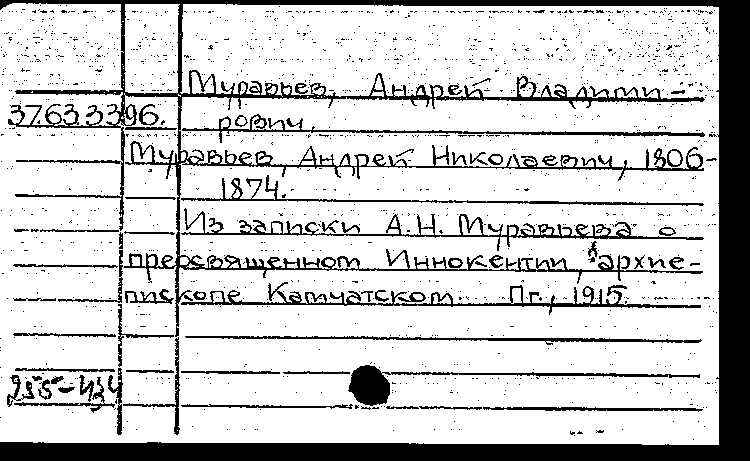 Муравьев, Андрей Владими-
37.63.3396. рович,
Муравьев, Андрей Николаевич, 1806-
1874.
Из записки А.Н. Муравьева о
преосвященном Иннокентии, архие-
пископе Камчатском. Пг., 1915.